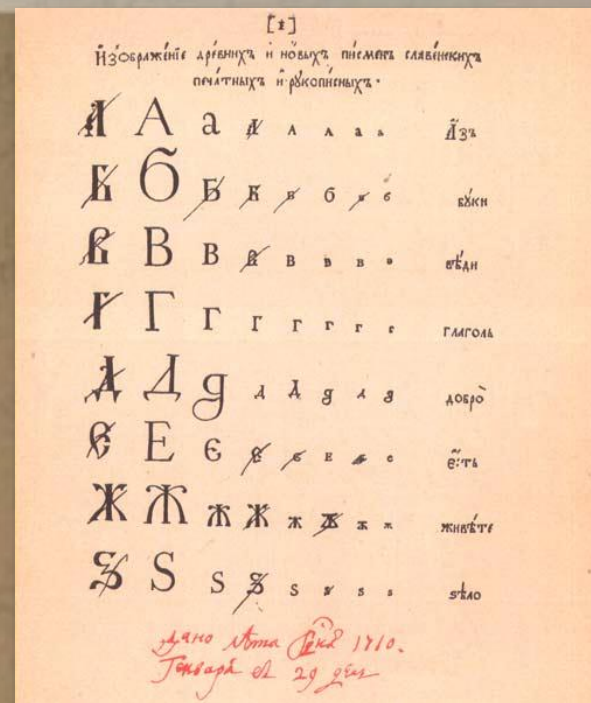 [1]
И҆зображе́нїе дре́внихъ и҆ но́выхъ пи́сменъ славе́нскихъ
печа́тныхъ и҆ рꙋкопи́сныхъ.
А А а А А А а а А҆́зъ
Б Б Б Б Б б Б б бꙋ́ки
В В В В В в в в вѣ́ди
Г Г Г Г Г г г г глаго́ль
Д Д д Д Д д д д добро̀
Є Е є Є є е є е е҆́сть
Ж Ж ж Ж ж Ж ж ж живѣ́те
Ѕ Ѕ ѕ Ѕ ѕ ѕ ѕ ѕ ѕѣло̀
Дано лѣта 1710.
Генваря в 29 день